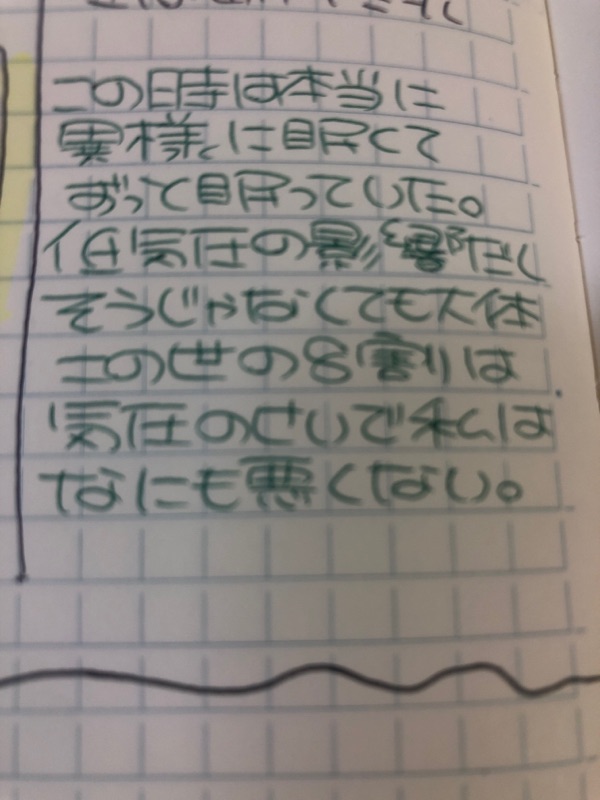 この時は本当に
異様に眠くて
ずっと眠っていた。
低気圧の影響だし
そうじゃなくても大体
この世の8割は
気圧のせいで私は
なにも悪くない。